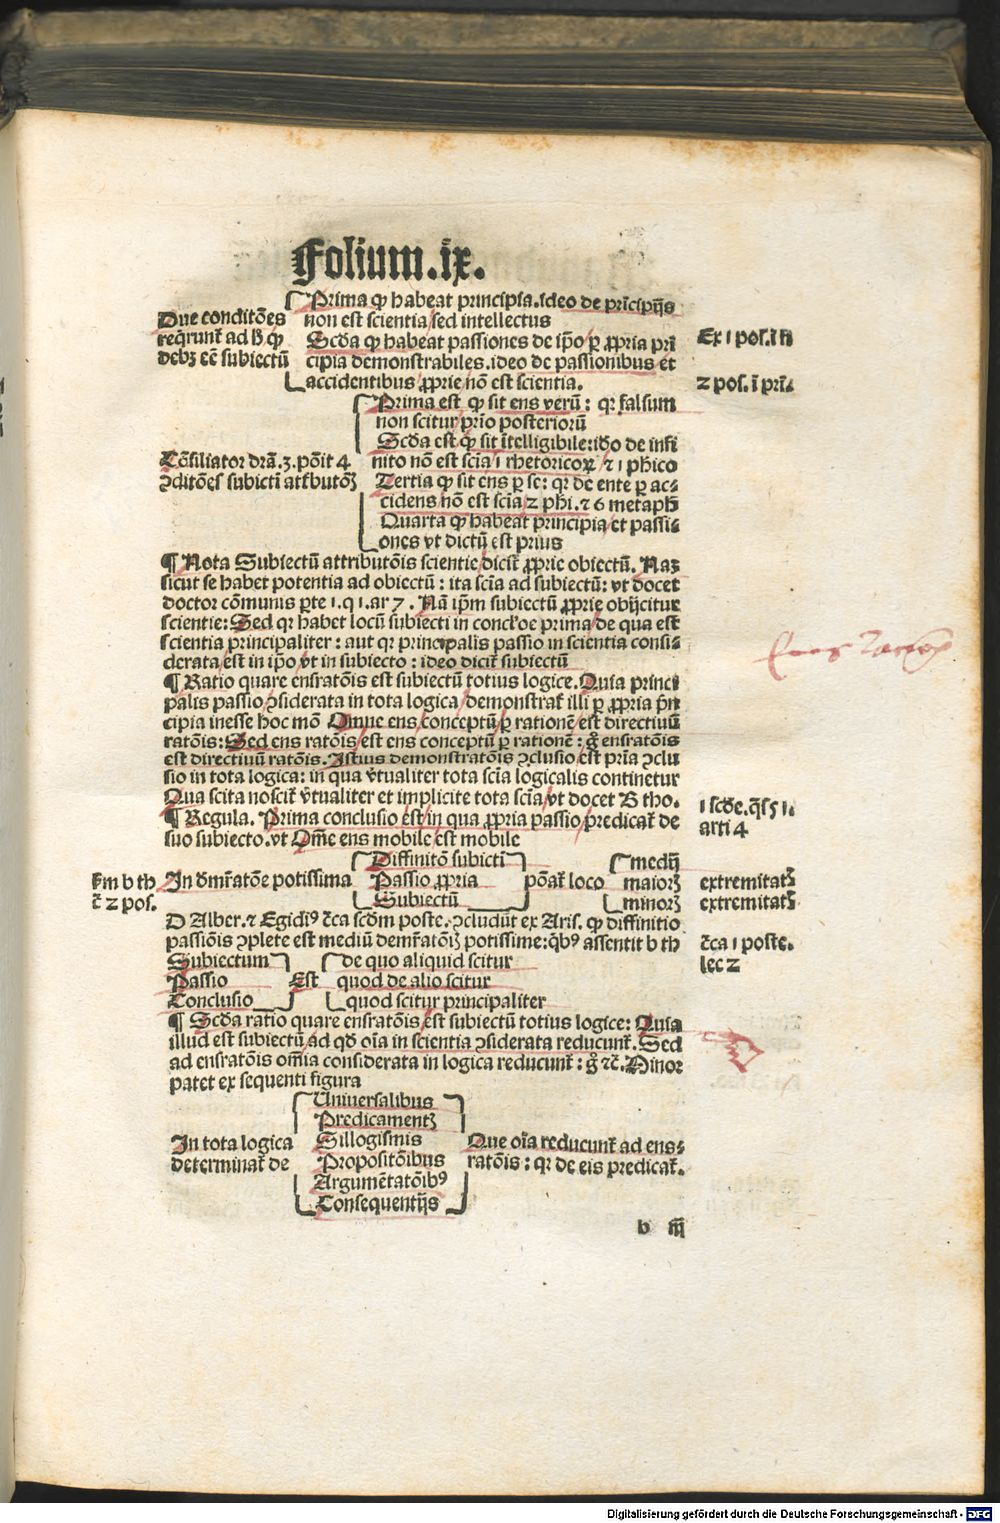 Folium.ix.
Due conditōes
req̄runt᷑ ad ꝙ
debꝫ eē subiectū
Prima ꝙ habeat principia.ideo de prīcipijs
non est scientia/sed intellectus
Scd̄a ꝙ habeat passiones de ip̄o/ꝑ ꝓpria pri
cipia demonstrabiles.ideo de passionibus et
accidentibus ꝓprie nō est scientia.
Ex 1 pos.ī fi
2 pos. ī pri.
Cōsiliator dr̄a.3.pōit 4
ꝯditōes subiecti at᷑butōꝫ
Prima est ꝙ sit ens verū: qꝛ falsum
non scitur/prio posteriorū
Scd̄a est ꝙ sit ītelligibile:iđo de infi
nito nō est scīa/1 rhetoricoꝝ ⁊ 1 phico
Tertia ꝙ sit ens ꝑ se: qꝛ de ente ꝑ ac⸗
cidens/nō est scīa/2 phi. ⁊ 6 metaph
Quarta ꝙ habeat principia/et passi⸗
ones vt dictū est prius
¶ Nota Subiectū attributōis scientie/dicit᷑ ꝓprie obiectū. Naꝫ
sicut se habet potentia ad obiectū: ita scīa ad subiectū: vt docet
doctor cōmunis ꝑte 1.q 1.ar 7. Nā ip̄m subiectū ꝓprie obijcitur
scientie: Sed qꝛ habet locū subiecti in concl'oe prima/de qua est
scientia principaliter: aut qꝛ principalis passio in scientia consi⸗
derata/est in ip̄o/vt in subiecto: ideo dicit᷑ subiectū
¶ Ratio quare ensratōis est subiectū totius logice. Quia princi
palis passio/ꝯsiderata in tota logica/demonstrat᷑ illi ꝑ ꝓpria prin
cipia inesse hoc mō Omne ens/conceptū/ꝑ rationē/est directiuū
ratōis: Sed ens ratōis/est ens conceptū ꝑ rationē: g̊ ensratōis
est directiuū ratōis. Istius demonstratōis ꝯclusio/est prīa ꝯclu
sio in tota logica: in qua v̓tualiter tota scīa logicalis continetur
Qua scita noscit᷑ v̓tualiter et implicite tota scīa/vt docet B tho.
¶ Regula. Prima conclusio est/in qua ꝓpria passio/predicat᷑ de
suo subiecto.vt Om̄e ens mobile/est mobile
1 scđe.
arti 4
fm b th
2 pos.
In dm̄ratōe potissima
Diffinitō subiecti
Passio ꝓpria
Subiectū
pōat᷑ loco
medij
maioꝛꝫ
minoꝛꝫ
extremitatꝫ
extremitatꝫ
D Alber.⁊ Egidiꝰ c̄ca scd̄m poste. ꝯcludūt ex Aris. ꝙ diffinitio
passiōis ꝯplete est mediū dem̄ratōiꝫ potissime:qb̄ꝰ assentit b th
c̄ca 1 poste.
lec 2
Subiectum
Passio
Conclusio
Est
de quo aliquid scitur
quod de alio scitur
quod scitur principaliter
¶ Scd̄a ratio quare ensratōis/est subiectū totius logice: Quia
illud est subiectū/ad qđ oīa in scientia ꝯsiderata reducunt᷑. Sed
ad ensratōis om̄ia considerata in logica reducunt᷑: g̊ ⁊c̄. Minor
patet ex sequenti figura
In tota logica
determinat᷑ de
Uniuersalibus
Predicamentꝫ
Sillogismis
Propositōibus
Argumētatōibꝰ
Consequentijs
Que oīa reducunt᷑ ad ens⸗
ratōis: qꝛ de eis predicat᷑.
b iij
Digitalisierung gefördert durch die Deutsche Forschungsgemeinschaft - DFG